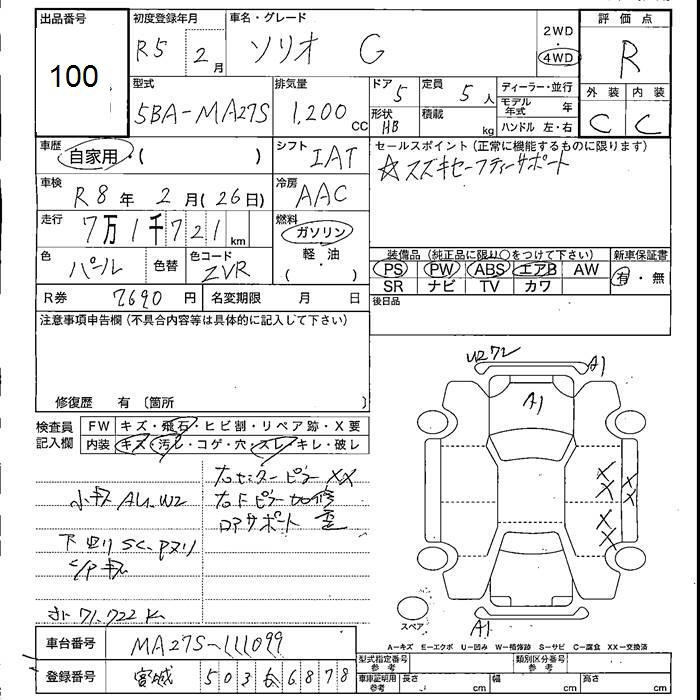 出品番号
100
初度登録年月
R5 2月
車名・グレード
ソリオ G
2WD
4WD
評価点
R
型式
5BA-MA27S
排気量
1,200 cc
ドア 5
形状 HB
定員 5人
積載 kg
ディーラー・並行
モデル年式 年
ハンドル 左・右
外装 内装
C C
車歴
自家用・( )
シフト
IAT
セールスポイント(正常に機能するものに限ります)
☆スズキセーフティーサポート
車検
R8年 2月(26日)
冷房
AAC
走行
7万1千721km
燃料
ガソリン
軽油
( )
色
パール
色替
色コード
ZVR
装備品(純正品に限り○をつけて下さい)
新車保証書
PS PW ABS エアB AW
SR ナビ TV カワ
有・無
R券 7690円
名変期限 月 日
後日品
注意事項申告欄(不具合内容等は具体的に記入して下さい)
修復歴 有〔箇所
検査員記入欄
FW キズ・飛石・ヒビ割・リペア跡・X要
内装 キズ・汚レ・コゲ・穴・スレ・キレ・破レ
右センターピラー XX
小キズ AU.W2
右Fピラー 修
コアサポート 歪
下回り SC.Pヌリ
C/Pキズ
71,722K
U2 72
A1
A1
XX
XX
XX
A1
スペア
A-キズ E-エクボ U-凹み W-補修跡 S-サビ C-腐食 XX-交換済
車台番号
MA27S-111099
登録番号
宮城 503 6878
型式指定番号 参考
類別区分番号 参考
車庫証明用 参考
長さ cm
幅 cm
高さ cm